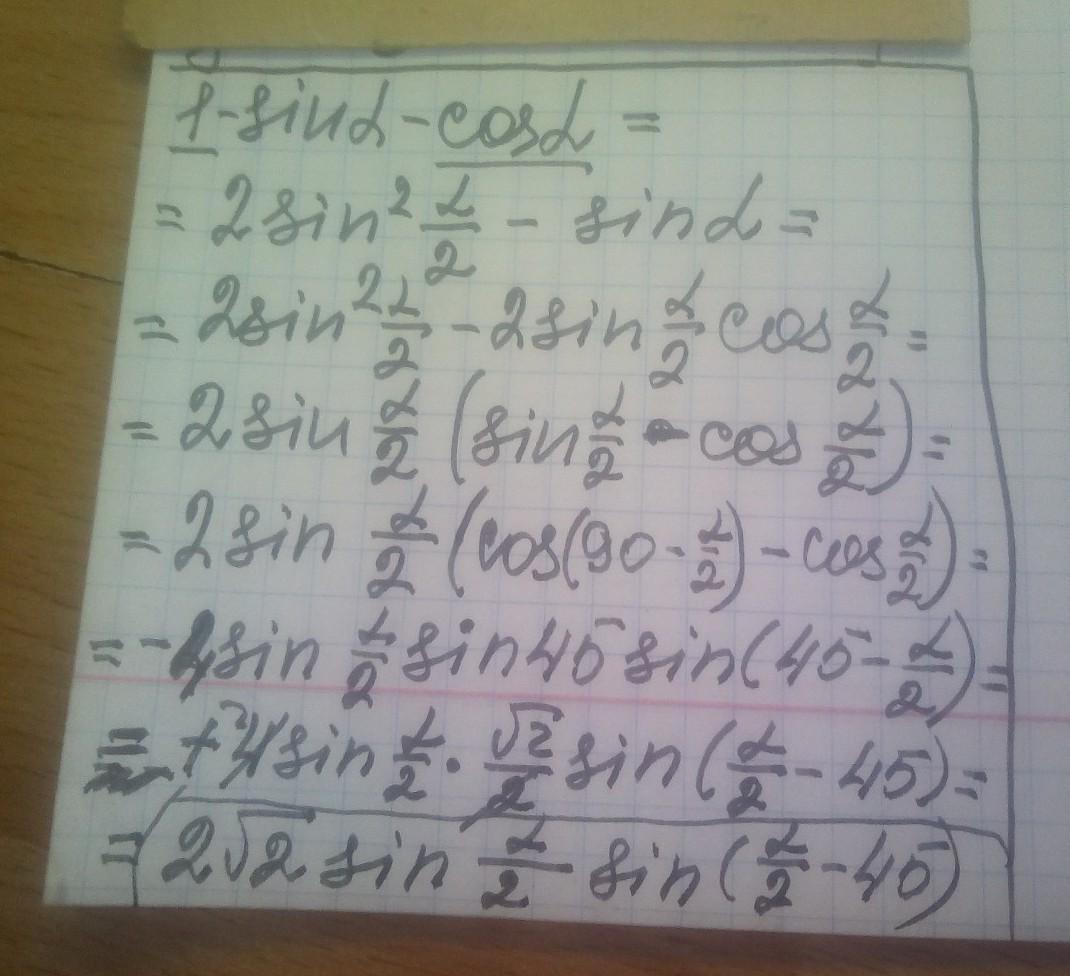 1-sinα-cosα=
=2sin²α/2 - sinα=
=2sin²α/2-2sinα/2cosα/2=
=2sinα/2(sinα/2-cosα/2)=
=2sinα/2(cos(90-α/2)-cosα/2)=
=-4sinα/2sin45sin(45-α/2)=
=+4sinα/2·√2/2sin(α/2-45)=
=2√2sinα/2sin(α/2-45)